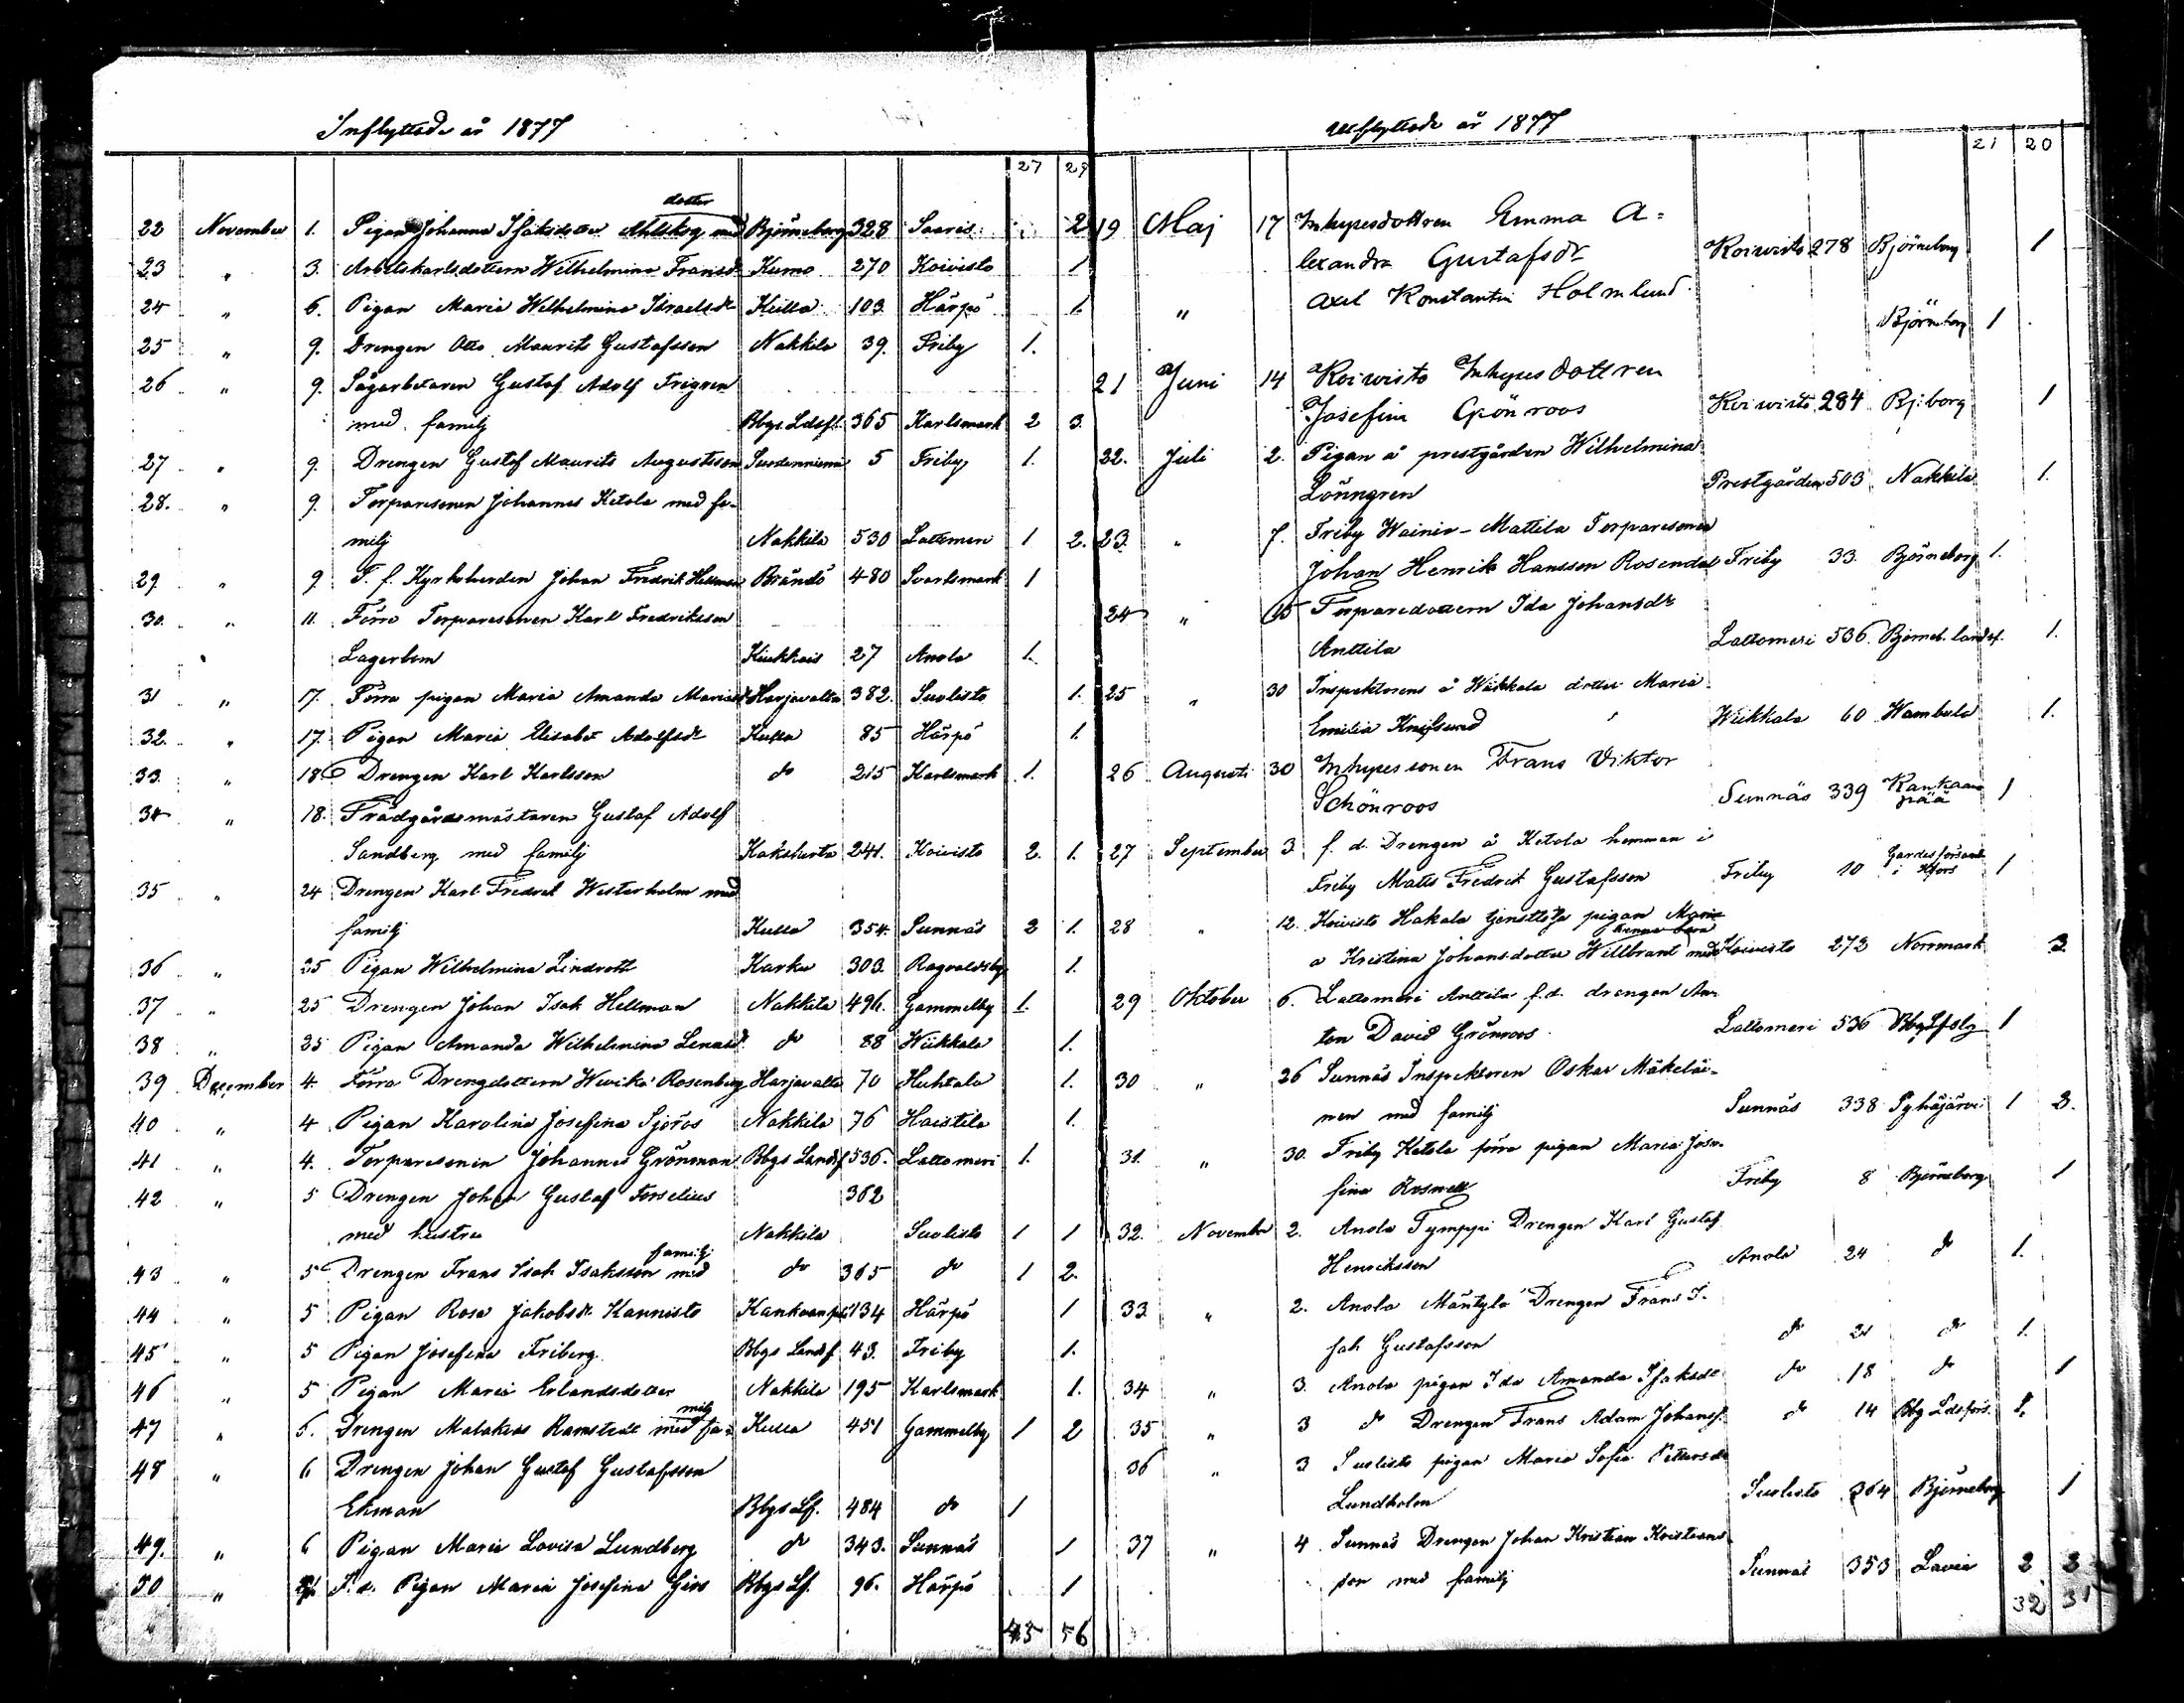 Inflyttade år 1877
27 29
dotter
22 November 1. Pigan Johanna Isaksdotter Ahlskog med Björneborg 328 Saaris 2
23 " 3. Arbetskarlsdottern Wilhelmina Fransdr Kumo 270 Koivisto 1
24 " 6. Pigan Maria Wilhelmina Israelsdr Kulla 103 Härpö 1.
25 " 9. Drengen Otto Maurits Gustafsson Nakkila 39. Friby 1.
26 " 9. Sågarbetaren Gustaf Adolf Frigren
med familj Bbgs Ldsf. 365 Karlsmark 2 3.
27 " 9. Drengen Gustaf Maurits Augustsson Suodenniemi 5 Friby 1.
28. " 9. Torparesonen Johannes Ketola med fa-
milj Nakkila 530 Lattomeri 1 2.
29. " 9. T. f. Kyrkoherden Johan Fredrik Hellman Brändö 480 Svartsmark 1
30. " 11. Förra Torparesonen Karl Fredriksson
Lagerbom Kiukkais 27 Anola 1.
31 " 17. Förra pigan Maria Amanda Mariasdr Harjavalta 382. Suolisto 1.
32. " 17. Pigan Maria Elisabet Adolfsdr Kulla 85 Härpö 1.
33. " 18. Drengen Karl Karlsson do 215 Karlsmark 1.
34 " 18. Trädgårdsmästaren Gustaf Adolf
Sandberg med familj Kakskerta 241. Koivisto 2. 1.
35 " 24 Drengen Karl Fredrik Westerholm med
familj Kulla 354. Sunnäs 2 1.
36 " 25 Pigan Wilhelmina Lindroth Karku 303. Ragvaldsby 1.
37 " 25 Drengen Johan Isak Hellman Nakkila 496. Gammelby 1.
38 " 25 Pigan Amanda Wilhelmina Lenasdr. do 88 Wiikkala 1.
39 December 4. Förra Drengdottern Wevika Rosenberg Harjavalta 70 Huhtala 1.
40 " 4 Pigan Karolina Josefina Sjöros Nakkila 76 Haistila 1.
41 " 4. Torparesonen Johannes Grönman Bbgs Landsf 536. Lattomeri 1.
42 " 5 Drengen Johan Gustaf Forselius 362
med hustru Nakkila Suolisto 1 1
familj
43 " 5 Drengen Frans Isak Isaksson med do 365 do 1 2.
44 " 5 Pigan Rosa Jakobsdr Kannisto Kankaanpä 134 Härpö 1
45 " 5 Pigan Josefina Friberg Bbgs Landsf 43. Friby 1.
46 " 5 Pigan Maria Erlandsdotter Nakkila 195 Karlsmark 1.
milj
47 " 5. Drengen Malakias Ramstedt med fa- Kulla 451 Gammelby 1 2
48 " 6 Drengen Johan Gustaf Gustafsson
Ekman Bbgs Lf. 484 do 1
49. " 6 Pigan Maria Lovisa Lundberg do 343. Sunnäs 1
50 " F.d. Pigan Maria Josefina Bbgs Lf. 96. Härpö 1
45 56
Utflyttade år 1877
21 20
19 Maj 17 Inhysesdottren Emma A-
lexandra Gustafsdr Koivisto 278 Björneborg 1
" Axel Konstantin Holmlund
Björneborg 1
21 Juni 14 Koivisto Inhysesdottren
Josefina Grönroos Koivisto 284 Bj:borg 1
22. Juli 2. Pigan å prestgården Wilhelmina
Lönngren Prestgården 503 Nakkila 1.
23. " 7. Friby Wainio-Mattila Torparesonen
Johan Henrik Hansson Rosendal Friby 33. Björneborg 1.
24 " 15 Torparedottern Ida Johansdr
Anttila Lattomeri 536. Björneb. landsf. 1.
25 " 30 Inspektorens å Wiikkala dotter Maria
Emilia Wiikkala 60 Wambula 1.
26 Augusti 30 Inhysessonen Frans Viktor
Schönroos Sunnäs 339 Kankaanpää 1
27 September 3 f.d. Drengen å Ketola hemman i
Friby Matts Fredrik Gustafsson Friby 10 Gardesförsaml i Hfors 1
28 " 12. Koivisto Hakala tjensthjo pigan Mari-
a Kristina Johansdotter Willbrant med Koivisto 272 Norrmark 3.
29 Oktober 6. Lattomeri Anttila f.d. drengen An-
ton David Grönroos Lattomeri 536 Bbg Lfslg 1
30 " 26 Sunnäs Inspektoren Oskar Mäkeläi-
nen med familj Sunnäs 338 Pyhäjärvi 1 3.
31. " 30. Friby Ketola förra pigan Maria Jose-
fina Rosnell Friby 8 Björneborg 1
32. November 2. Anola Tymppi Drengen Karl Gustaf
Henriksson Anola 24 do 1.
33 " 2. Anola Mäntylä Drengen Frans I-
sak Gustafsson do 21 do 1.
34 " 3. Anola pigan Ida Amanda Isaksdr do 18 do 1
35 " 3 do Drengen Frans Adam Johanss. do 14 Bbg Ldsförs. 1.
36 " 3 Suolisto pigan Maria Sofia Petersdr
Lundholm Suolisto 364 Björneborg 1
37 " 4 Sunnäs Drengen Johan Kristian Kristians-
son med familj Sunnäs 353 Lavia 2 3
32 31